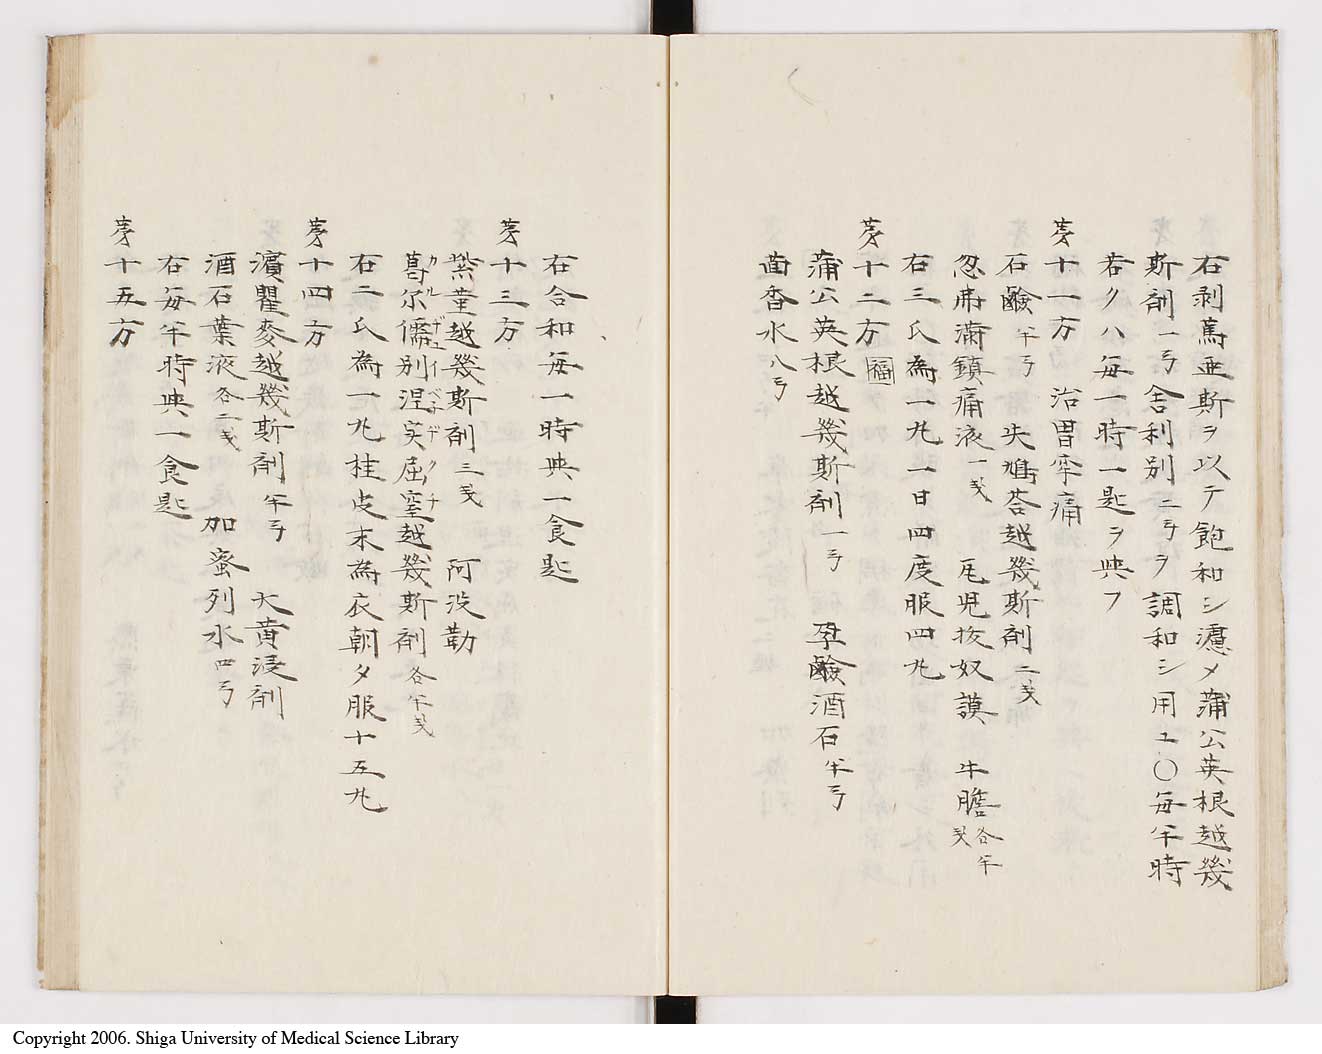 右剥篤亜斯ヲ以テ飽和シ濾メ蒲公英根越幾
斯剤一弓舎利別二弓ヲ調和シ用ユ〇毎半時
若クハ毎一時一匙ヲ與フ
㐧十一方 治胃牢痛
石鹸半弓 失鳩荅越幾斯剤二戔
忽弗満鎮痛液一戔 芫児抜奴謨 牛膽各半戔
右三氏為一丸一日四度服四丸
㐧十二方 福
蒲公英根越幾斯剤一弓 孕鹸酒石半弓
茴香水八弓
右合和毎一時與一食匙
㐧十三方
菫越幾斯剤三戔 阿没勒
葛尓儒別涅実屈窒越幾斯剤各半戔
カルデユーベネデクチ
右二氏為一丸桂皮末為衣朝夕服十五丸
㐧十四方
濱瞿麥越幾斯剤半弓 大黄浸剤
酒石葉液各二戔 加蜜列水四弓
右毎半時與一食匙
㐧十五方
Copyright 2006. Shiga University of Medical Science Library